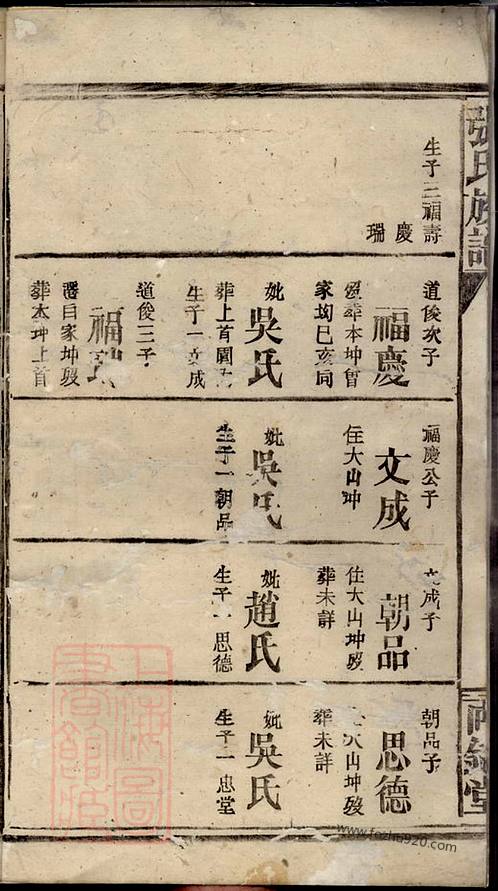 張氏族譜
生子三福壽
慶
瑞
道俊次子
福慶
葬本坤曾
家坳巳亥向
妣吳氏
葬上首
生子一文成
道俊三子
福瑞
曰家坤歿
葬本坤上首
福慶公子
文成
住大山坤
妣吳氏
生子一朝品
文成子
朝品
住大山坤歿
葬未詳
妣趙氏
生子一思德
朝品子
思德
大山坤歿
葬未詳
妣吳氏
生子一忠堂
堂
上海圖書館藏
www.fozhu920.com